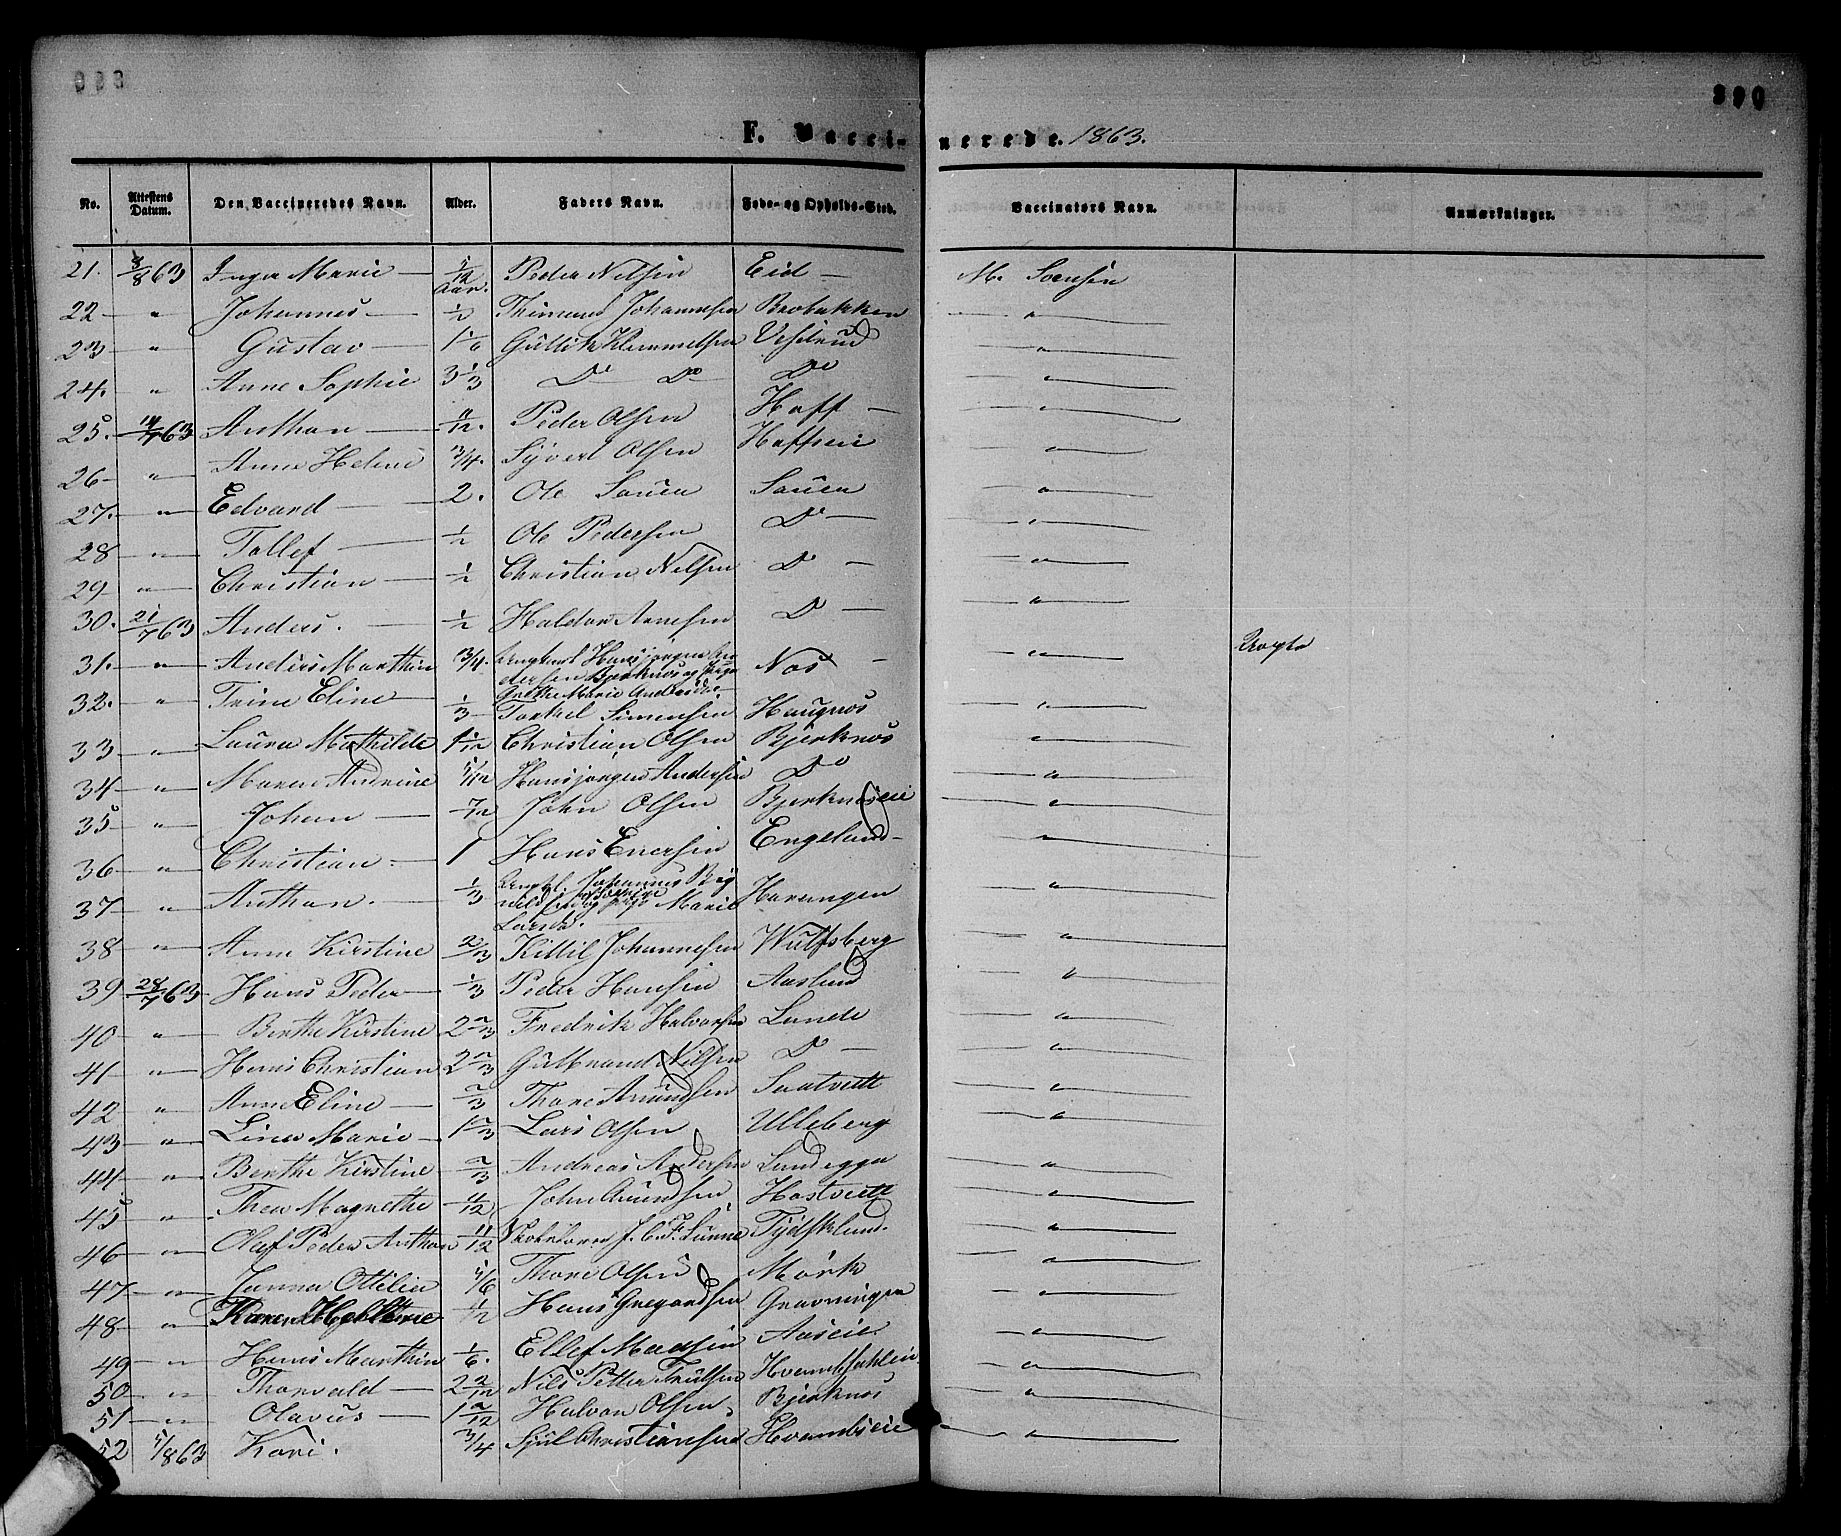 390
F. Vacci- nerede. 1863.
No. Attestens Datum. Den Vaccineredes Navn. Alder. Faders Navn. Føde- og Opholds-Sted. Vaccinators Navn. Anmærkninger.
21. 8/8 63 Inger Marie — 5/12 Aar. Peder Nilsen Eid — M. Sørensen
22 — " Johannes — 1/2 Johannesen Brobakken — " —
23 — " Gustav — 1 1/6 Gullik Klemmetsen Veslerud — " —
24. " Anne Sophie 3 1/3 Do Do Do — " —
25. 14/7 63 Anthon — 11/12. Peder Olsen Hoff — — " —
26 — " Anne Heline 3/4. Syverl Olsen Hoffseie — " —
27. — " Edvard — 2. Ole Sauen Sauen — " —
28 — " Tollef — 1/2 Ole Pedersen Do — — " —
29 — " Christian — 1/2 Christian Nilsen Do — — " —
30. 21/7 63 Anders. — 1/2 Haldor Arnesen Do — — " —
31. — " Anders Marthin 3/4. Ungkarl Hansjørgen An
dersen Bjerknøs og Pige Nøs — — " — Uægte
Grethe Marie Andersdtr.
32. — " Trine Eline — 1/3 Torkel Simensen Haugnøs — " —
33 — " Laura Mathilde 1 1/12 Christian Olsen Bjerknøs — " —
34 — " Maren Andrine 5/12 Hansjørgen Andersen Do — " —
35 — " Johan — 7/12 John Olsen Bjerknøseie — " —
36 — " Christian — 1 Hans Enersen Engelund — — " —
37 — " Anthon. — 1/3 Ungkl. Johannes Big
Marie Horungen — " —
Larsd.
38 — " Anne Kirstine 2/3 Kittil Johannesen Wulfsberg — " —
39 28/7 63 Hans Peder — 1/3 Peder Hansen Aaslund — " —
40 — " Berthe Kirstine 2 2/3 Fredrik Halvorsen Lunde — " —
41 — " Hans Christian 2 2/3 Gulbrand Nilsen Do — — " —
42 " Anne Eline — 2/3 Thore Amundsen Saatvedt — " —
43 — " Lina Marie — 1 2/3 Lars Olsen Ulleberg — " —
44 — " Berthe Kirstine 2/3 Andreas Andersen Lundeggen — " —
45 — " Thea Magnethe 4/12 John Amundsen Hostvedt — " —
46 — " Olaf Peder Anthon 11/12 Skolelærer J. C. F. Lunne Tydsklund. — " —
47 — " Janna Ottelia 5/6 Thore Olsen Mørk — " —
48 — " Karen 1/2 Hans Gregardsen Gravningen — " —
49 — " Hans Marthin 1/6. Ellef Madsen Aaseie. — " —
50 — " Thorvald — 2 2/12 Nils Petter Trulsen — " —
51 — " Olavus — 1 2/12 Halvor Olsen Bjerknøs — " —
52 5/8 63 Kari. 3/4 Sjul Christiansen Hvambseie — " —